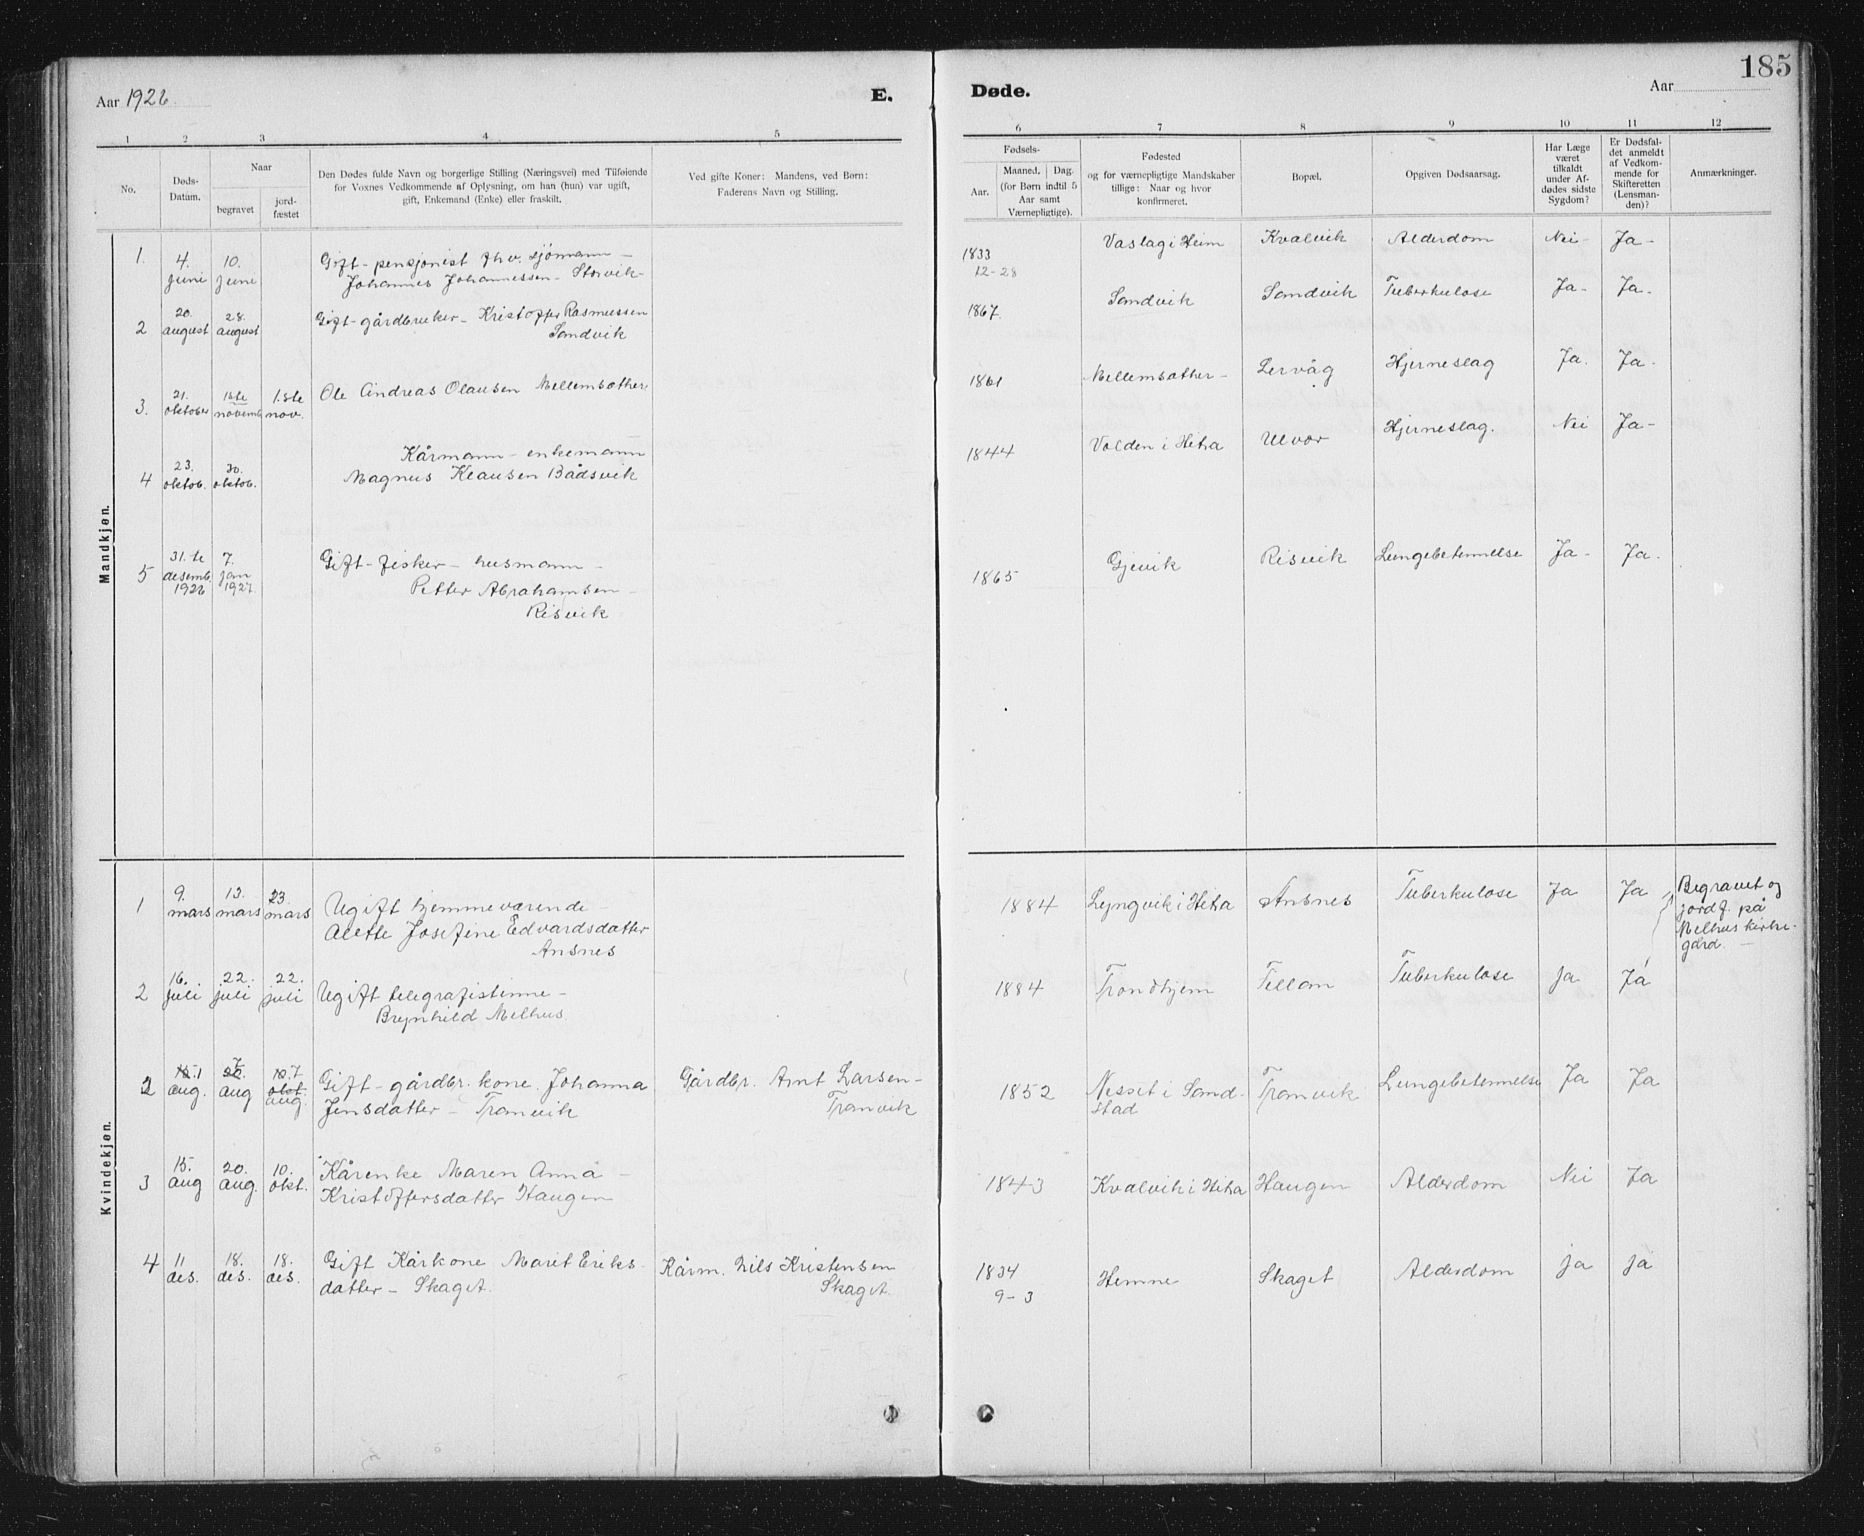 Aar 1926
E.
Døde.
Aar
185
1 2 3 4 5 6 7 8 9 10 11 12
No.
Døds-
Datum.
Naar
begravet
jord-
fæstet
Den Dødes fulde Navn og borgerlige Stilling (Næringsvei) med Tilføiende
for Voxnes Vedkommende af Oplysning, om han (hun) var ugift,
gift, Enkemand (Enke) eller fraskilt.
Ved gifte Koner: Mandens, ved Børn:
Faderens Navn og Stilling.
Fødsels-
Aar.
Maaned. Dag.
(for Børn indtil 5
Aar samt
Værnepligtige).
Fødested
og for værnepligtige Mandskaber
tillige: Naar og hvor
konfirmeret.
Bopæl.
Opgiven Dødsaarsag.
Har Læge
været
tilkaldt
under Af-
dødes sidste
Sygdom?
Er Dødsfal-
det anmeldt
af Vedkom-
mende for
Skifteretten
(Lensman-
den)?
Anmærkninger.
Mandkjøn.
1. 4. juni 10. juni Gift - pensjonist fhv. sjømann -
Johannes Johannessen - Storvik -
1833 12-28 Vaslag i Heim Kvalvik Alderdom Nei - Ja -
2 20. august 28. august Gift - gårdbruker - Kristoffer Rasmussen
Sandvik
1867. Sandvik Sandvik Tuberkulose Ja - Ja -
3. 21. oktober novemb. 1ste nov. Ole Andreas Olausen Mellemsæther
1861 Mellemsæther - Lervåg Hjerneslag Ja. Ja -
4 23. oktob. 30. oktob. Kårmann - enkemann
Magnus Klausen Bådsvik
1844 Volden i Hitra Ulvør Hjerneslag. Nei Ja -
5 31.te desemb. 1926 7. jan 1927. Gift - fisker - husmann -
Petter Abrahamsen -
Risvik
1865 Gjevik Risvik Lungebetennelse Ja - Ja.
Kvindekjøn.
1 9. mars 13. mars 23. mars Ugift hjemmeværende -
Alette Josefine Edvardsdatter
Ansnes
1884 Lyngvik i Hitra Ansnes Tuberkulose Ja Ja
Begravet og
jordf. på
Melhus kirke-
gård. -
2 16. juli 22. juli 22. juli Ugift telegrafistinne -
Brynhild Melhus
1884 Trondhjem Fillan Tuberkulose ja Ja
2 1 aug. 7. aug 7 aug. Gift - gårdbr. kone. Johanna
Jensdatter - Tranvik
Gårdbr. Arnt Larsen -
Tranvik
1852 Nesset i Sand-
stad Tranvik Lungebetennelse Ja Ja
3 15. aug 20. aug. 10. okt. Kårenke Maren Anna -
Kristoffersdatter Haugen
1843 Kvalvik i Hitra Haugen Alderdom Nei Ja
4 11 des. 18. des. 18. des. Gift Kårkone Marit Eriks-
datter - Skaget.
Kårm. Nils Kristensen
Skaget.
1834 9-3 Hemne Skaget Alderdom ja ja